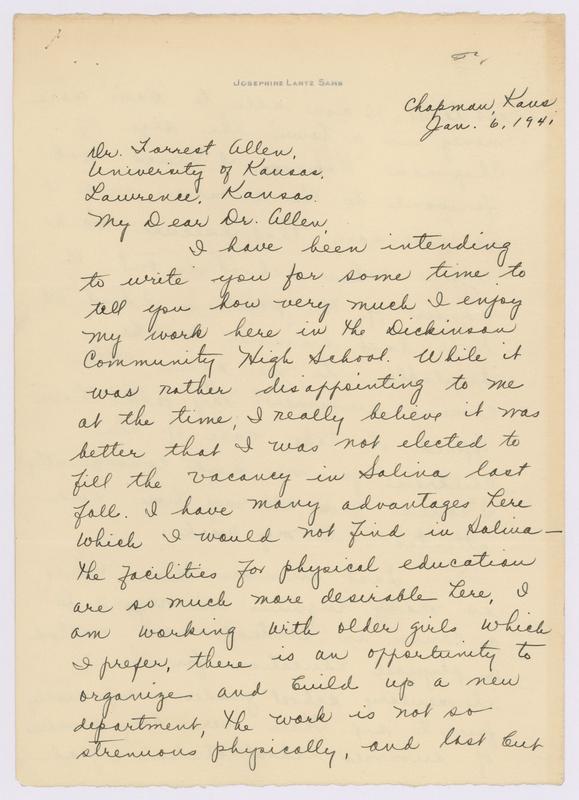 JOSEPHINE LANTZ SAMS
Chapman, Kans.
Jan. 6, 1941
Dr. Forrest Allen,
University of Kansas,
Lawrence, Kansas.
My Dear Dr. Allen,
I have been intending
to write you for some time to
tell you how very much I enjoy
my work here in the Dickinson
Community High School. While it
was rather disappointing to me
at the time, I really believe it was
better that I was not elected to
fill the vacancy in Salina last
fall. I have many advantages here
which I would not find in Salina—
the facilities for physical education
are so much more desirable here, I
am working with older girls which
I prefer, there is an opportunity to
organize and build up a new
department, the work is not so
strenuous physically, and last but